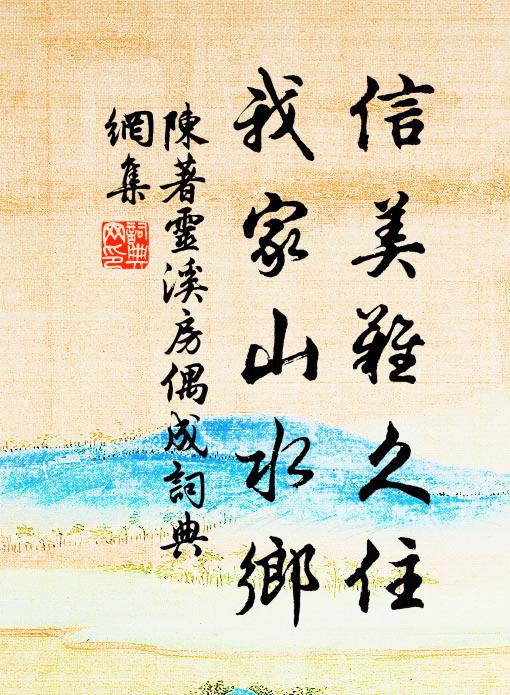 信美難久住
我家山水鄉
陳著靈溪房偶成詞典
網集
詞典
网印